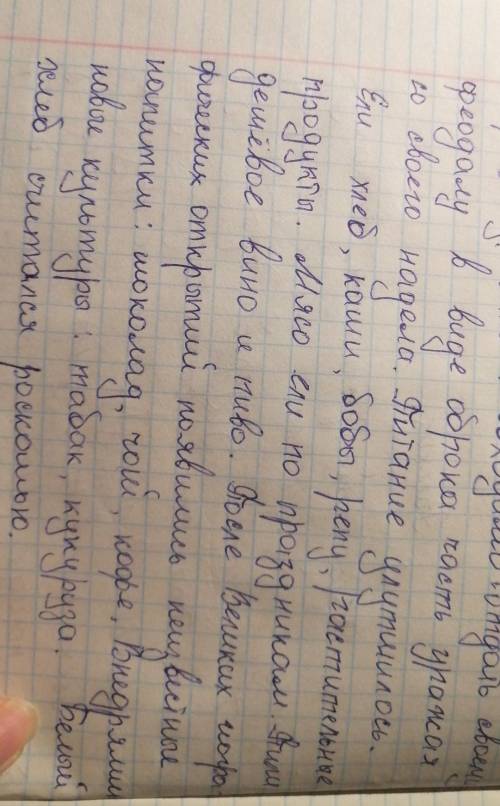 отдать своему
феодалу в виде оброка часть урожая
со своего надела. Питание улучшилось.
Ели хлеб, каши, бобы, репу, растительные
продукты. Мясо ели по праздникам. Пили
дешёвое вино и пиво. После Великих геогра-
фических открытий появились неизвестные
напитки: шоколад, чай, кофе, Внедряли
новые культуры: табак, кукуруза. Белый
хлеб считался роскошью.